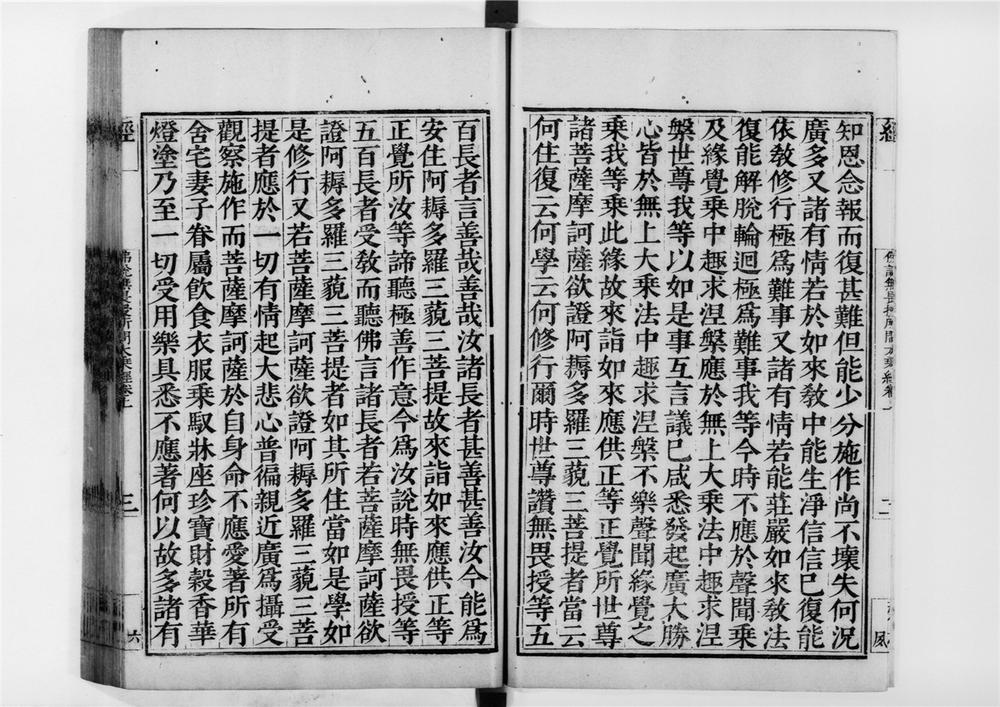 經
知恩念報而復甚難但能少分施作尚不壞失何況
廣多又諸有情若於如來敎中能生淨信信已復能
依敎修行極爲難事又諸有情若能莊嚴如來敎法
復能解脫輪迴極爲難事我等今時不應於聲聞乘
及緣覺乘中趣求涅槃應於無上大乘法中趣求涅
槃世尊我等以如是事互言議已咸悉發起廣大勝
心皆於無上大乘法中趣求涅槃不樂聲聞緣覺之
乘我等乘此緣故來詣如來應供正等正覺所世尊
諸菩薩摩訶薩欲證阿耨多羅三藐三菩提者當云
何住復云何學云何修行爾時世尊讚無畏授等五
百長者言善哉善哉汝諸長者甚善甚善汝今能爲
安住阿耨多羅三藐三菩提故來詣如來應供正等
正覺所汝等諦聽極善作意今爲汝說時無畏授等
五百長者受敎而聽佛言諸長者若菩薩摩訶薩欲
證阿耨多羅三藐三菩提者如其所住當如是學如
是修行又若菩薩摩訶薩欲證阿耨多羅三藐三菩
提者應於一切有情起大悲心普徧親近廣爲攝受
觀察施作而菩薩摩訶薩於自身命不應愛著所有
舍宅妻子眷屬飲食衣服乘馭牀座珍寶財穀香華
燈塗乃至一切受用樂具悉不應著何以故多諸有
經
三
六